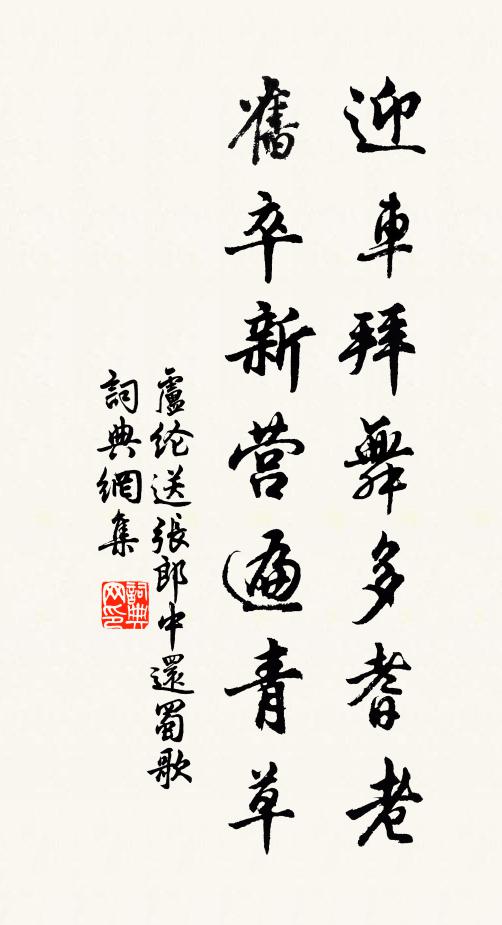 迎車拜舞多耆老
舊卒新營遍青草
盧纶送張郎中還蜀歌
詞典網集
詞典网印